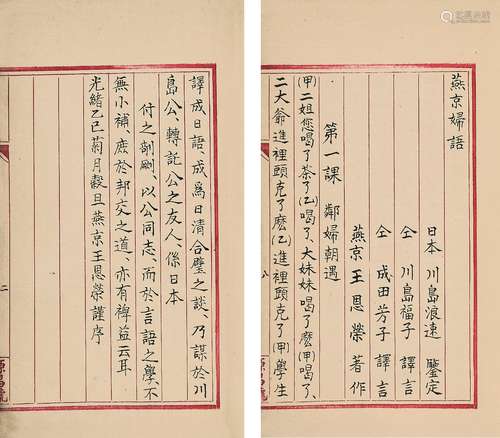 燕京婦語
日本 川島浪速 鑒定
仝 川島福子 譯言
仝 成田芳子 譯言
燕京王恩榮 著作
第一課 鄰婦朝遇
(甲)二姐您喝了茶了(乙)喝了、大妹妹喝了麽(甲)喝了、
二大爺進裡頭克了麽(乙)進裡頭克了(甲)學生
譯成日語、成爲日清合璧之談、乃謀於川
島公、轉託公之友人、係日本
付之剞劂、以公同志、而於言語之學、不
無小補、庶於邦交之道、亦有裨益云耳
光緒乙巳菊月穀旦燕京王恩榮謹序
二